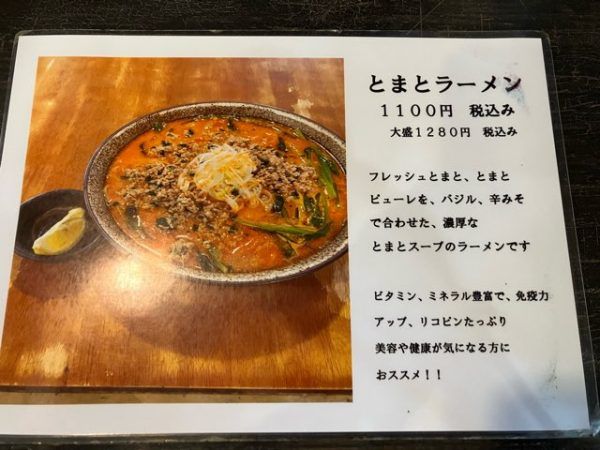 とまとラーメン
1100円 税込み
大盛1280円 税込み
フレッシュとまと、とまと
ピューレを、バジル、辛みそ
で合わせた、濃厚な
とまとスープのラーメンです
ビタミン、ミネラル豊富で、免疫力
アップ、リコピンたっぷり
美容や健康が気になる方に
おススメ！！